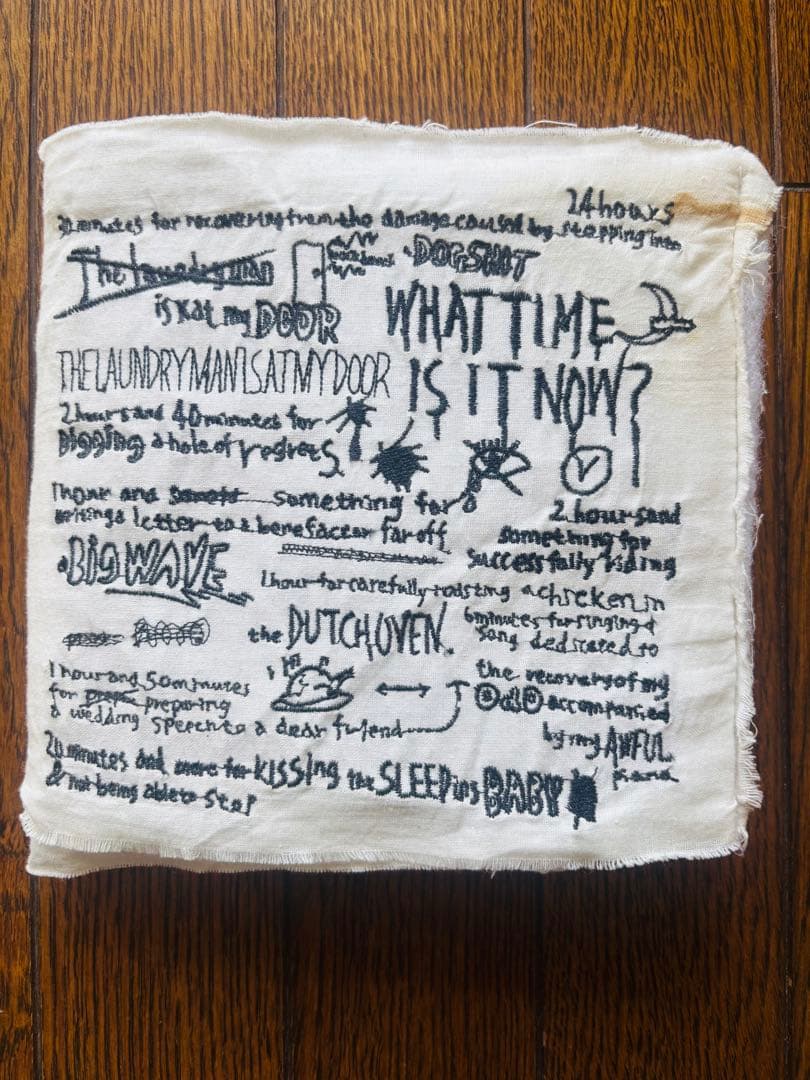 24 hours
20 minutes for recovering from the damage caused by stepping into
a DOGSHIT
The laundryman
is at my DOOR
WHAT TIME
IS IT NOW?
THE LAUNDRYMAN IS AT MY DOOR
2 hours and 40 minutes for
Digging a hole of regrets.
1 hour and something for
writing a letter to a benefactor far off
2 hours and
something for
successfully riding
a BIG WAVE
1 hour for carefully roasting a chicken in
the DUTCH OVEN.
6 minutes for singing a
song dedicated to
the recovery of my
accompanied
by my AWFUL
piano
1 hour and 50 minutes
for preparing
a wedding speech to a dear friend
20 minutes and more for KISSING the SLEEPING BABY
& not being able to stop